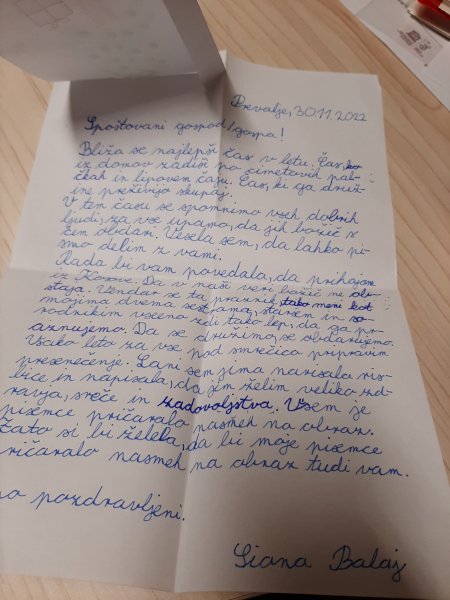 Prevalje, 30.11.2022
Spoštovani gospod/gospa!
Bliža se najlepši čas v letu. Čas, ko
iz domov zadiši po cimetovih pal-
čkah in lipovem čaju. Čas, ki ga druž-
ine preživijo skupaj.
V tem času se spomnimo vseh dobrih
ljudi, za vse upamo, da jih božič s
čem obdari. Vesela sem, da lahko pi-
smo delim z vami.
Rada bi vam povedala, da prihajam
iz Kosova. Da v naši veri božič ne ob-
staja. Vendar se ta praznik, tako meni kot
mojima dvema sestrama, staršem in so-
rodnikim vseeno zdi tako lep, da ga pr-
aznujemo. Da se družimo, se obdarujemo.
Vsako leto za vse pod smrečico pripravim
presenečenje. Lani sem jima narisala ris-
bice in napisala, da jim želim veliko zd-
ravja, sreče in zadovoljstva. Vsem je
pisemce pričaralo nasmeh na obraz.
Zato si bi želela, da bi moje pisemce
pričaralo nasmeh na obraz tudi vam.
pozdravljeni.
Liana Balaj